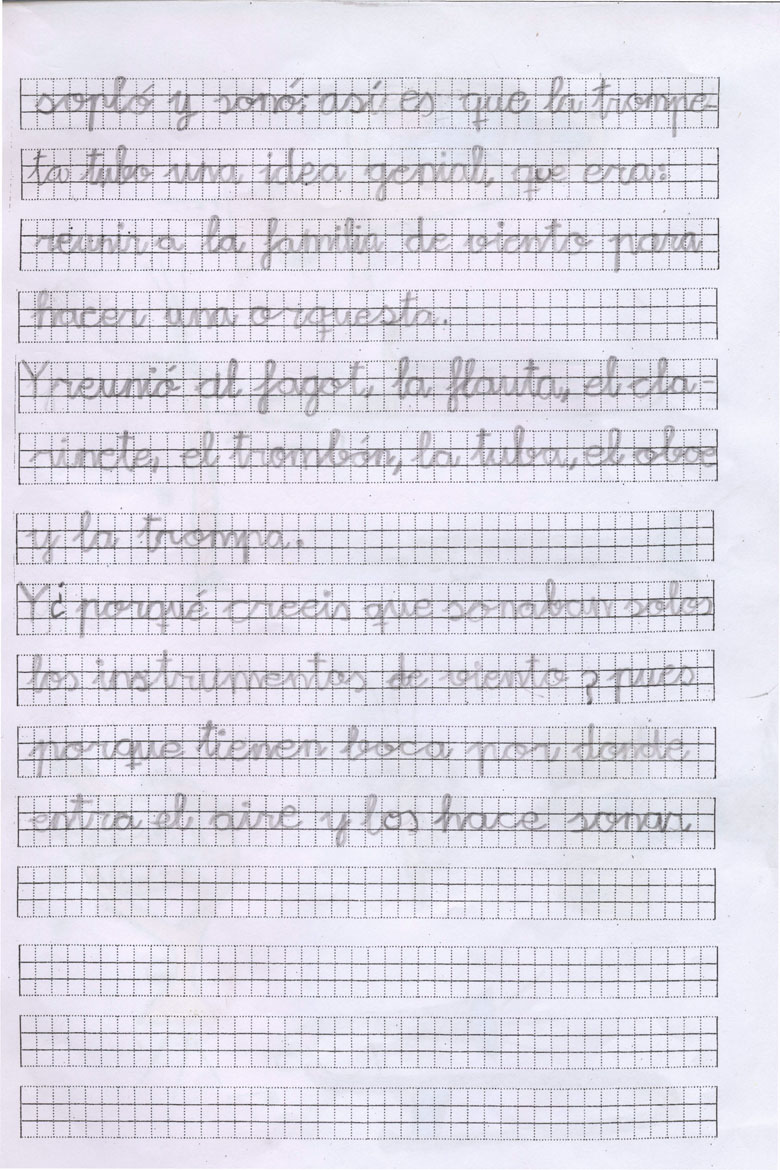 sopló y sonó; así es que la trompe-
ta tubo una idea genial, que era:
reunir a la familia de viento para
hacer una orquesta.
Y reunió al fagot, la flauta, el cla-
rinete, el trombón, la tuba, el oboe
y la trompa.
Y ¿ porqué creeis que sonaban solos
los instrumentos de viento ? pues
porque tienen boca por donde
entra el aire y los hace sonar